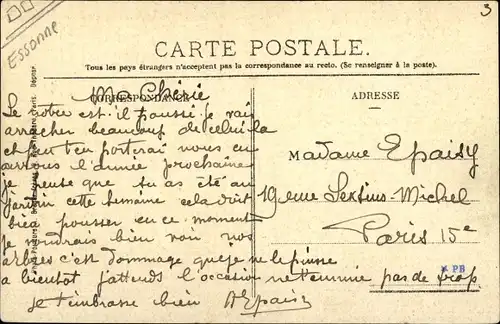 Essonne
3
CARTE POSTALE.
Tous les pays étrangers n'acceptent pas la correspondance au recto. (Se renseigner à la poste).
CORRESPONDANCE
ADRESSE
Ma Chérie
Le notre est-il poussé. je vai
arracher beaucoup de celui la
et peut on portirai nous en
aurons l'année prochaine
je pense que tu as été au
jardin cette semaine cela doit
bien pousser en ce moment
je voudrais bien voir nos
arbres c'est dommage que je ne le puisse
a bientot j'attends l'occasion ne t'ennuie pas de trop
je t'embrasse bien AEpaisy
Madame Epaisy
19 rue Sextius-Michel
Paris 15e
PB